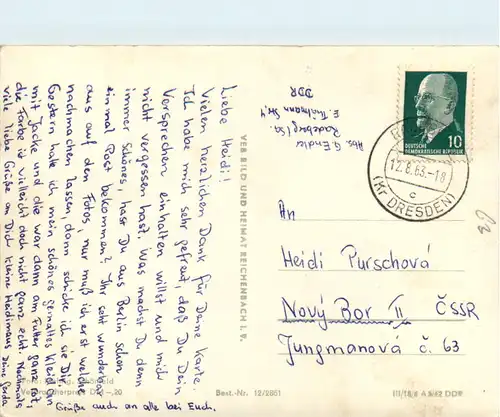 Liebe Heidi!
Vielen herzlichen Dank für Deine Karte.
Ich habe mich sehr gefreut, daß Du Dein
Versprechen einhalten willst und mich
nicht vergessen hast. Was machst Du denn
immer Schönes, hast Du aus Berlin schon
einmal Post bekommen? Ihr seht wunderbar
aus auf den Fotos, nur muß ich erst welche
nachmachen lassen, dann schicke ich sie Dir.
Gestern hatte ich mein schönes gemaltes Kleid an
mit Jacke und die war dann am Futter ganz rot,
die Farbe ist vielleicht doch nicht ganz echt. Nochmals
viele liebe Grüße an Dich kleine Heidimaus Deine Gerda
Grüße auch an alle bei Euch.
VEB BILD UND HEIMAT REICHENBACH I. V.
Verbraucherpreis DM -,20
Best.-Nr. 12/2861
Abs. G. Endler
Radeberg / Sa.
E. Thälmann Str. 4
DDR
10
DEUTSCHE
DEMOKRATISCHE REPUBLIK
12.8.63.-18
c
(Kr DRESDEN)
An
Heidi Purschová
Nový Bor II ČSSR
Jungmanová č. 63
DDR